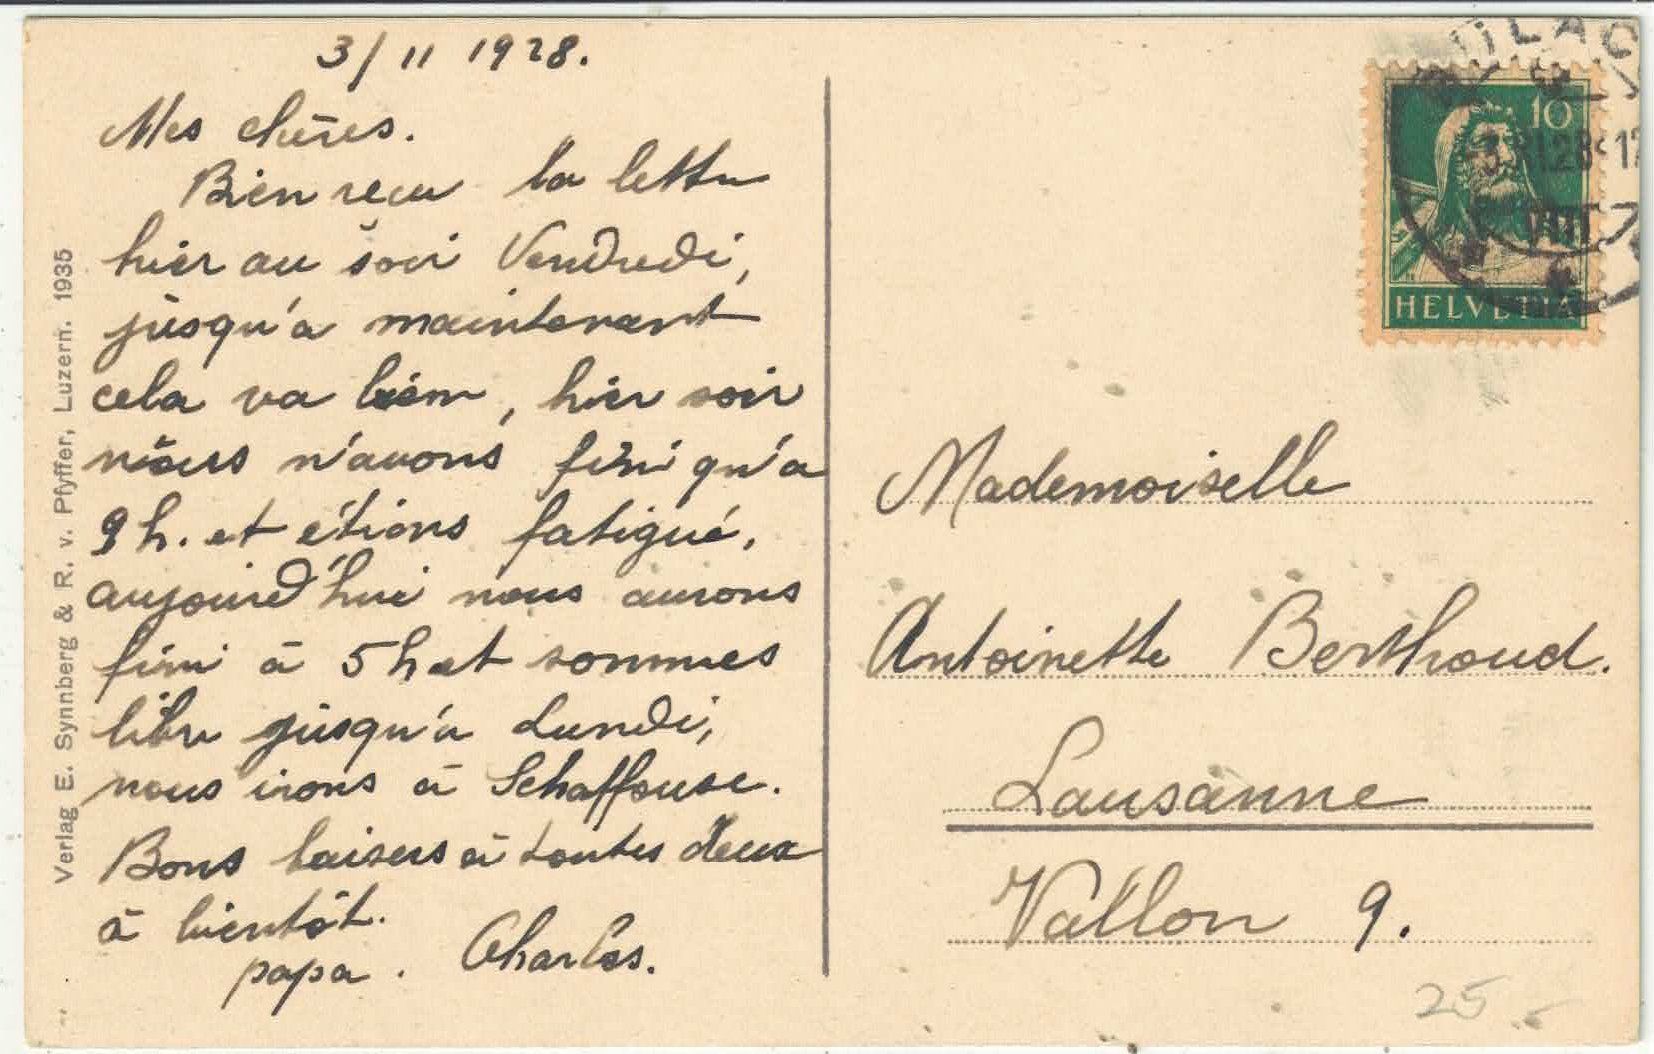 3/11 1928.
Mes chères.
Bien reçu la lettre
hier au soir Vendredi,
jusqu'a maintenant
cela va bien, hier soir
nous n'avons fini qu'a
9 h. et étions fatigué,
aujourd'hui nous aurons
fini à 5 h et sommes
libre jusqu'à Lundi,
nous irons à Schaffouse.
Bons baisers à toutes deux
à bientôt.
papa. Charles.
Verlag E. Synnberg & R. v. Pfyffer, Luzern. 1935
10
HELVETIA
Mademoiselle
Antoinette Berthoud.
Lausanne
Vallon 9.
25.-